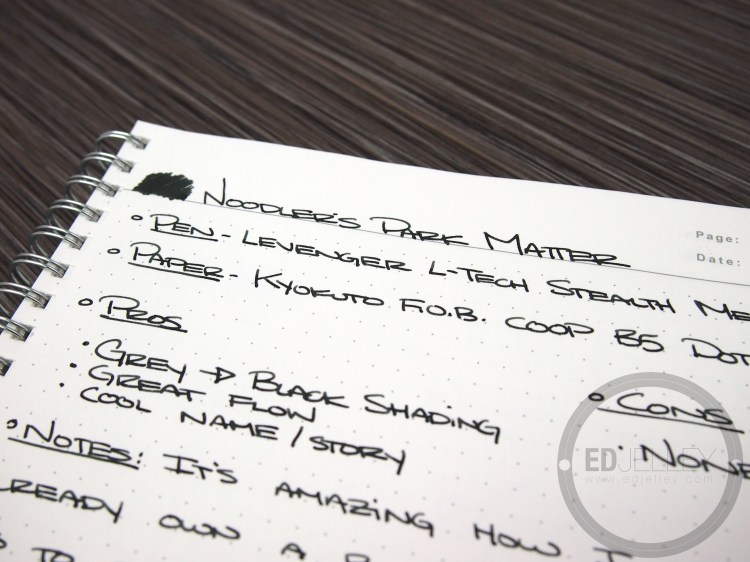 Noodler's Park Matter
Page:
Date:
• Pen - Levenger L-Tech Stealth Me
• Paper - Kyokuto F.O.B. COOP B5 Dot
• Pros
• Grey → Black Shading
• Great Flow
• Cool Name / Story
• Cons
• None
• Notes: It's amazing how I
lready own a
to
EDJELLEY
www.edjelley.com